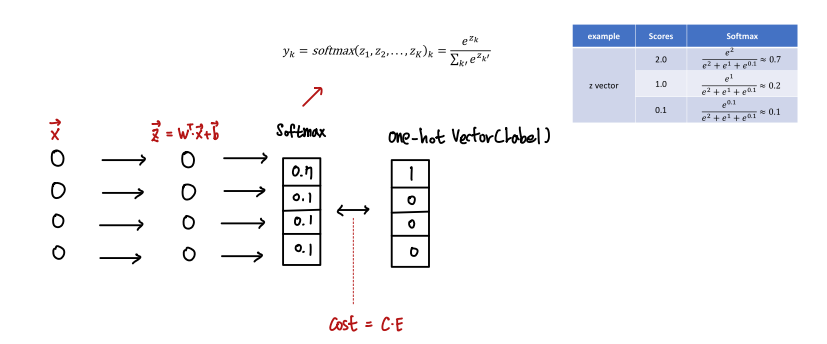 y_k = softmax(z_1, z_2, ..., z_K)_k = e^{z_k} / Σ_{k'} e^{z_{k'}}
example Scores Softmax
z vector
2.0 e^2 / (e^2 + e^1 + e^{0.1}) ≈ 0.7
1.0 e^1 / (e^2 + e^1 + e^{0.1}) ≈ 0.2
0.1 e^{0.1} / (e^2 + e^1 + e^{0.1}) ≈ 0.1
x⃗ z⃗ = W^T·x⃗+b⃗ Softmax one-hot Vector(Label)
0.7 1
0.1 0
0.1 0
0.1 0
Cost = C·E